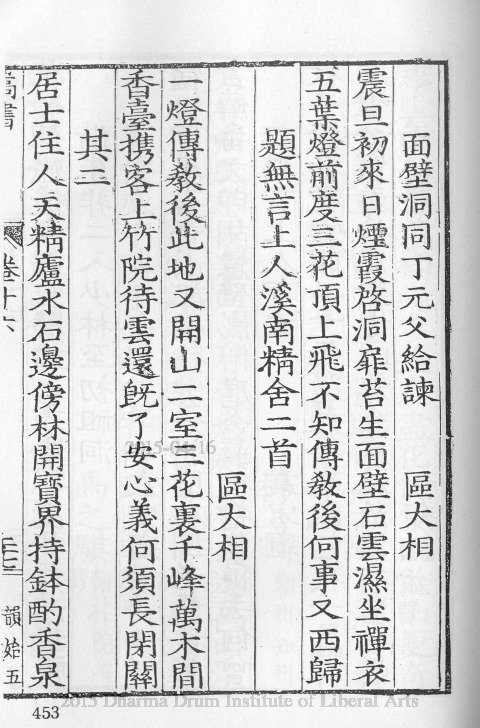 面壁洞同丁元父給諫　區大相
震旦初來日煙霞啓洞扉苔生面壁石雲濕坐禪衣
五葉燈前度三花頂上飛不知傳敎後何事又西歸
題無言上人溪南精舍二首
區大相
一燈傳敎後此地又開山二室三花裏千峰萬木間
香臺携客上竹院待雲還旣了安心義何須長閉關
其二
居士住人天精廬水石邊傍林開寶界持鉢酌香泉
嵩書
卷十六
韻始五
453
2015-04-16
2015 Dharma Drum Institute of Liberal Arts